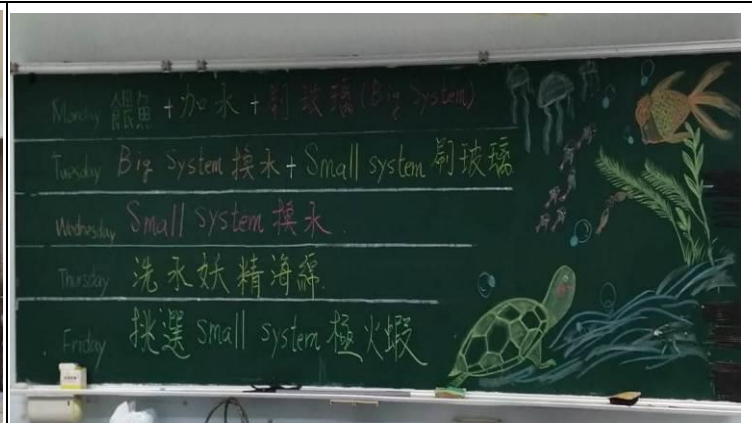 Monday 餵魚+加水+刷玻璃(Big System)
Tuesday Big System 換水+Small system 刷玻璃
Wednesday Small System 換水.
Thursday 洗水妖精海綿.
Friday 挑選 small system 極火蝦